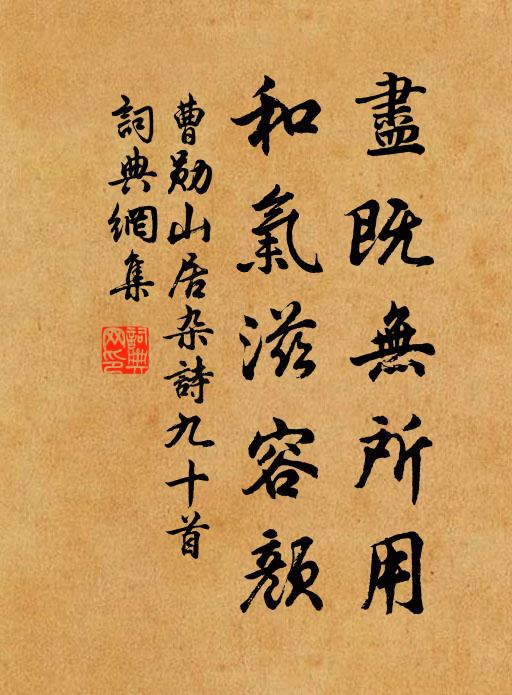 盡既無所用
和氣滋容顏
曹勛山居杂詩九十首
詞典網集
詞典網印